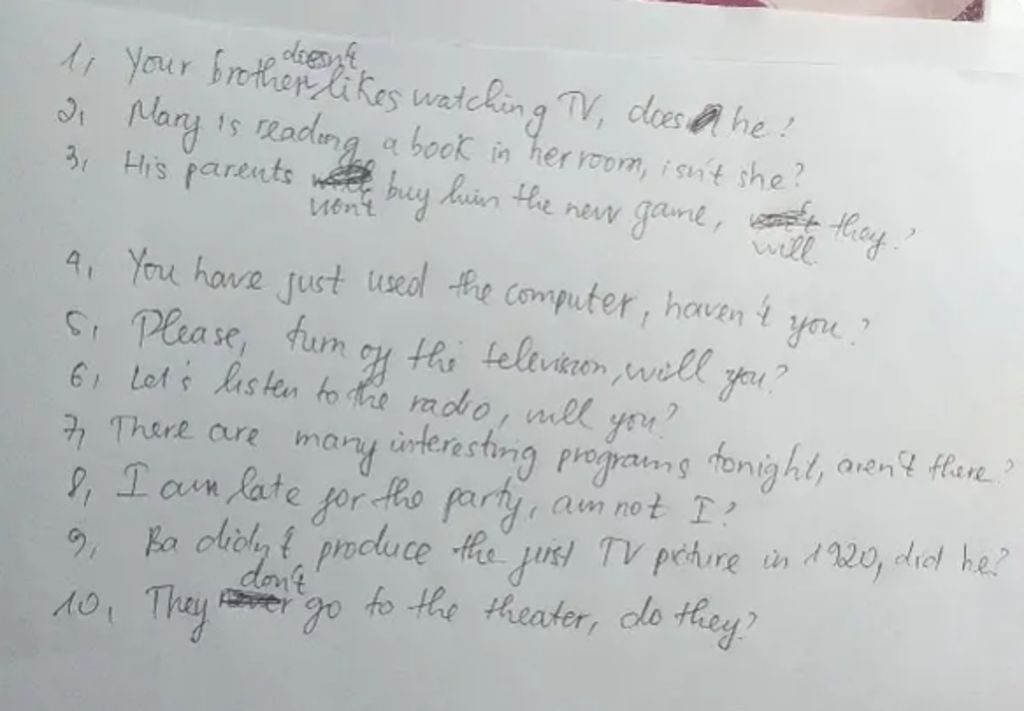 1, Your brother doesn't likes watching TV, does he?
2, Mary is reading a book in her room, isn't she?
3, His parents won't buy him the new game, will they?
4, You have just used the computer, haven't you?
5, Please, turn off the television, will you?
6, Let's listen to the radio, will you?
7, There are many interesting programs tonight, aren't there?
8, I am late for the party, am not I?
9, Ba didn't produce the first TV picture in 1920, did he?
10, They don't go to the theater, do they?